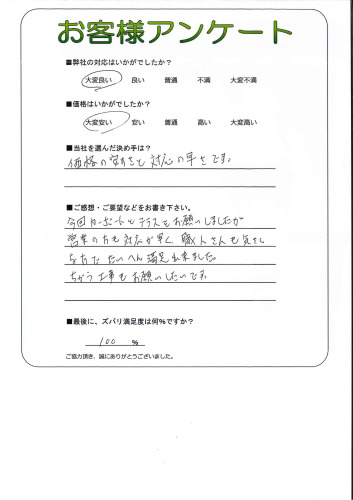 お客様アンケート
■弊社の対応はいかがでしたか？
大変良い 良い 普通 不満 大変不満
■価格はいかがでしたか？
大変安い 安い 普通 高い 大変高い
■当社を選んだ決め手は？
価格の安さと対応の早さです。
■ご感想・ご要望などをお書き下さい。
今回カーポートとテラスをお願いしましたが
営業の方も対応が早く、職人さんも気さく
な方で たいへん満足出来ました。
ちがう工事もお願いしたいです。
■最後に、ズバリ満足度は何%ですか？
100 %
ご協力頂き、誠にありがとうございました。